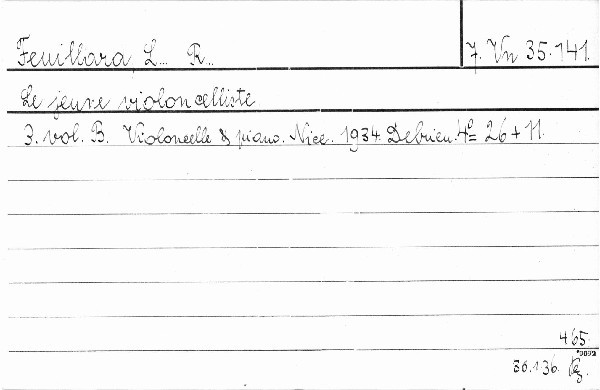 Feuillara L.. R..
7. Vn 35.141.
Le jeune violoncelliste
3. vol. B. Violoncelle & piano. Nice. 1934. Debrieu. 4º 26+11.
465.
36.136.